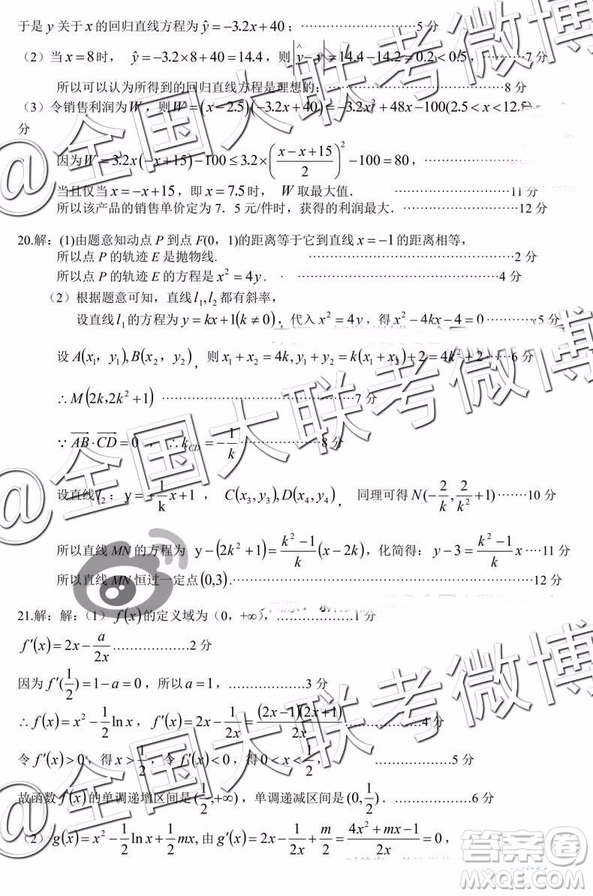 于是 y 关于 x 的回归直线方程为 ŷ = -3.2x + 40 ; ……………………5 分
(2)当 x = 8 时, ŷ = -3.2×8 + 40 = 14.4 ,则 ŷ - y = 14.4 - 14.2 = 0.2 < 0.5 , ………7 分
所以可以认为所得到的回归直线方程是理想的; ……………………8 分
(3)令销售利润为 W ,则 W = (x - 2.5)(-3.2x + 40) = -3.2x² + 48x - 100(2.5 < x < 12.5
分
因为 W = 3.2x(-x + 15) - 100 ≤ 3.2×((x - x + 15)/2)² - 100 = 80 , ……………………
当且仅当 x = -x + 15 ,即 x = 7.5 时, W 取最大值. ……………………11 分
所以该产品的销售单价定为 7.5 元/件时,获得的利润最大. ……………………12 分
20.解:(1)由题意知动点 P 到点 F(0,1)的距离等于它到直线 x = -1 的距离相等,
所以点 P 的轨迹 E 是抛物线. ……………………2 分
所以点 P 的轨迹 E 的方程是 x² = 4y . ……………………4 分
(2)根据题意可知,直线 l₁, l₂ 都有斜率,
设直线 l₁ 的方程为 y = kx + 1(k ≠ 0) ,代入 x² = 4y ,得 x² - 4kx - 4 = 0 …………5 分
设 A(x₁, y₁), B(x₂, y₂) ,则 x₁ + x₂ = 4k, y₁ + y₂ = k(x₁ + x₂) + 2 = 4k² + 2 ……6 分
∴ M(2k, 2k² + 1) ……………………7 分
∵ AB · CD = 0 , ∴ k_CD = -1/k ……………………8 分
设直线 l₂ : y = -1/k x + 1 , C(x₃, y₃), D(x₄, y₄) , 同理可得 N(-2/k, 2/k² + 1) ……10 分
所以直线 MN 的方程为 y - (2k² + 1) = (k² - 1)/k (x - 2k) ,化简得: y - 3 = (k² - 1)/k x ……11 分
所以直线 MN 恒过一定点 (0,3) . ……………………12 分
21.解:解:(1) f(x) 的定义域为(0,+∞), ……………………1 分
f′(x) = 2x - a/2x ………………2 分
因为 f′(1/2) = 1 - a = 0 ,所以 a = 1 , ……………3 分
∴ f(x) = x² - 1/2 ln x , f′(x) = 2x - 1/2x = (2x - 1)(2x + 1)/2x ……………4 分
令 f′(x) > 0 ,得 x > 1/2 ,令 f′(x) < 0 ,得 0 < x < 1/2 , ……………………5 分
故函数 f(x) 的单调递增区间是 (1/2, +∞) ,单调递减区间是 (0, 1/2) . ……………6 分
(2) g(x) = x² - 1/2 ln x + mx, 由 g′(x) = 2x - 1/2x + m/2 = (4x² + mx - 1)/2x = 0 ,
@全国大联考微博
@全国大联考微博
@全国大联考微博
答案卷